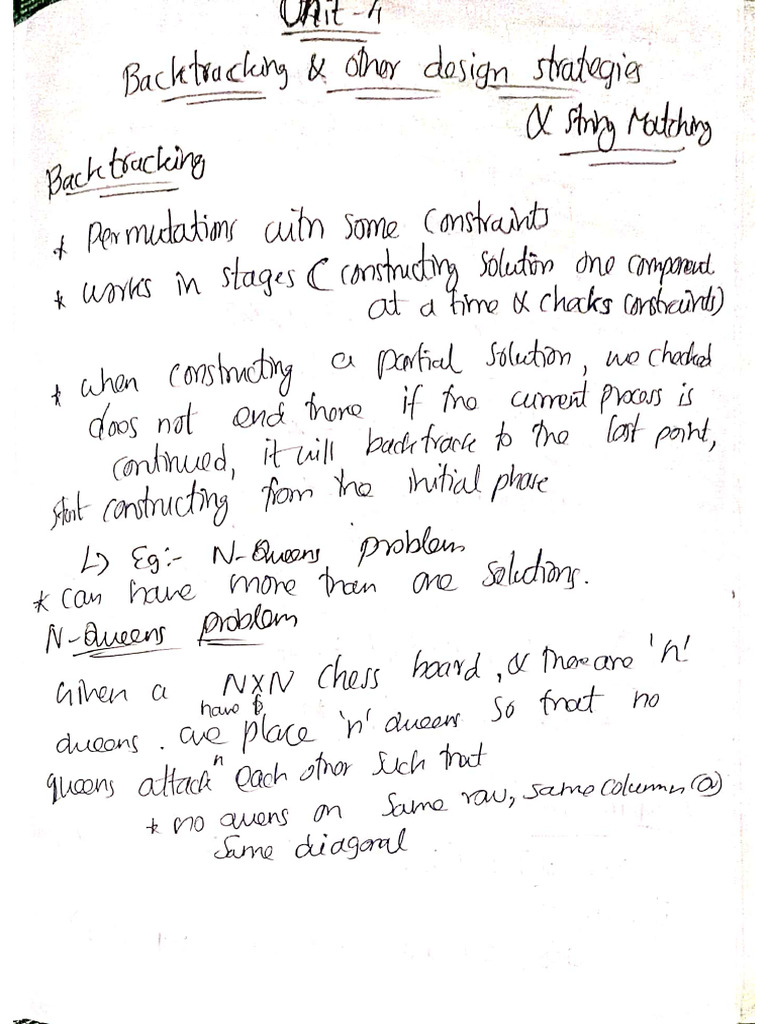 Unit - 4
Backtracking & other design strategies
& string Matching
Backtracking
* Permutations with some constraints
* works in stages ( constructing solution one component
at a time & checks constraints)
* when constructing a partial solution, we checked
does not end there if the current process is
continued, it will backtrack to the last point,
start constructing from the initial phase
↳ Eg:- N-Queens problem
* can have more than one solutions.
N-Queens problem
Given a NXN chess board, & there are 'n'
have to
queens. we place 'n' queens so that no
queens attack each other such that
* no queens on same row, same column (or)
same diagonal